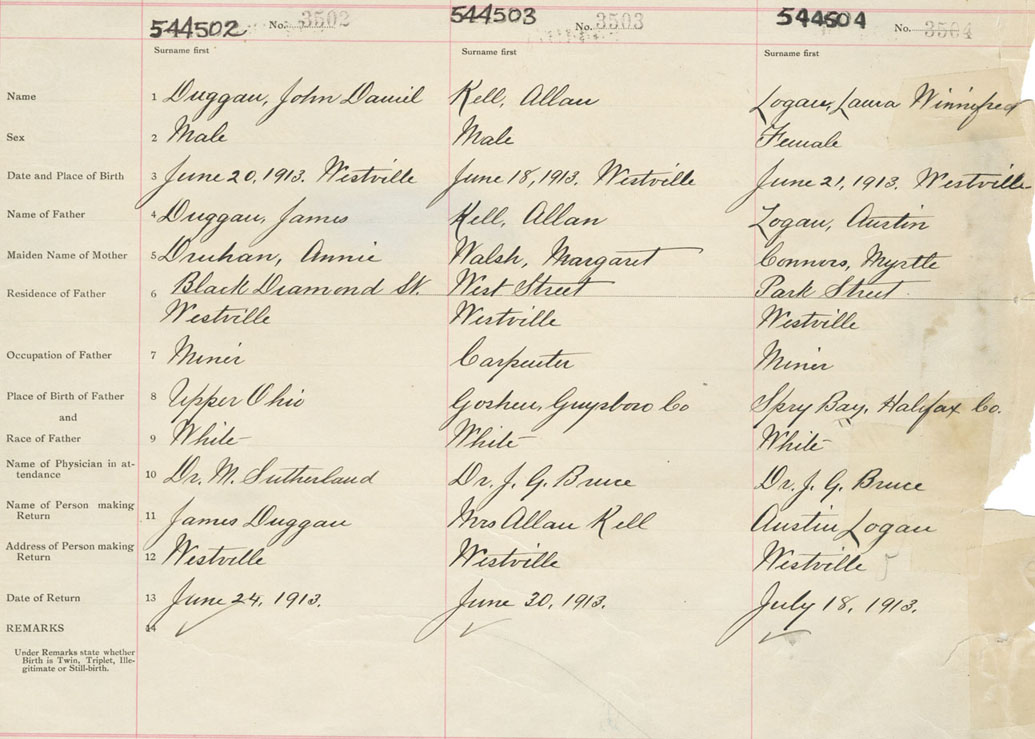 544502 No. 3502 544503 No. 3503 544504 No. 3504
Surname first Surname first Surname first
Name 1 Duggan, John Daniel Kell, Allan Logan, Laura Winnifred
Sex 2 Male Male Female
Date and Place of Birth 3 June 20, 1913. Westville June 18, 1913. Westville June 21, 1913. Westville
Name of Father 4 Duggan, James Kell, Allan Logan, Austin
Maiden Name of Mother 5 Druhan, Annie Walsh, Margaret Connors, Myrtle
Residence of Father 6 Black Diamond St. West Street Park Street
Westville Westville Westville
Occupation of Father 7 Miner Carpenter Miner
Place of Birth of Father 8 Upper Ohio Goshen, Guysboro Co Spry Bay, Halifax Co.
and
Race of Father 9 White White White
Name of Physician in at-
tendance 10 Dr. M. Sutherland Dr. J. G. Bruce Dr. J. G. Bruce
Name of Person making
Return 11 James Duggan Mrs Allan Kell Austin Logan
Address of Person making
Return 12 Westville Westville Westville
Date of Return 13 June 24, 1913. June 30, 1913. July 18, 1913.
REMARKS 14
Under Remarks state whether
Birth is Twin, Triplet, Ille-
gitimate or Still-birth.